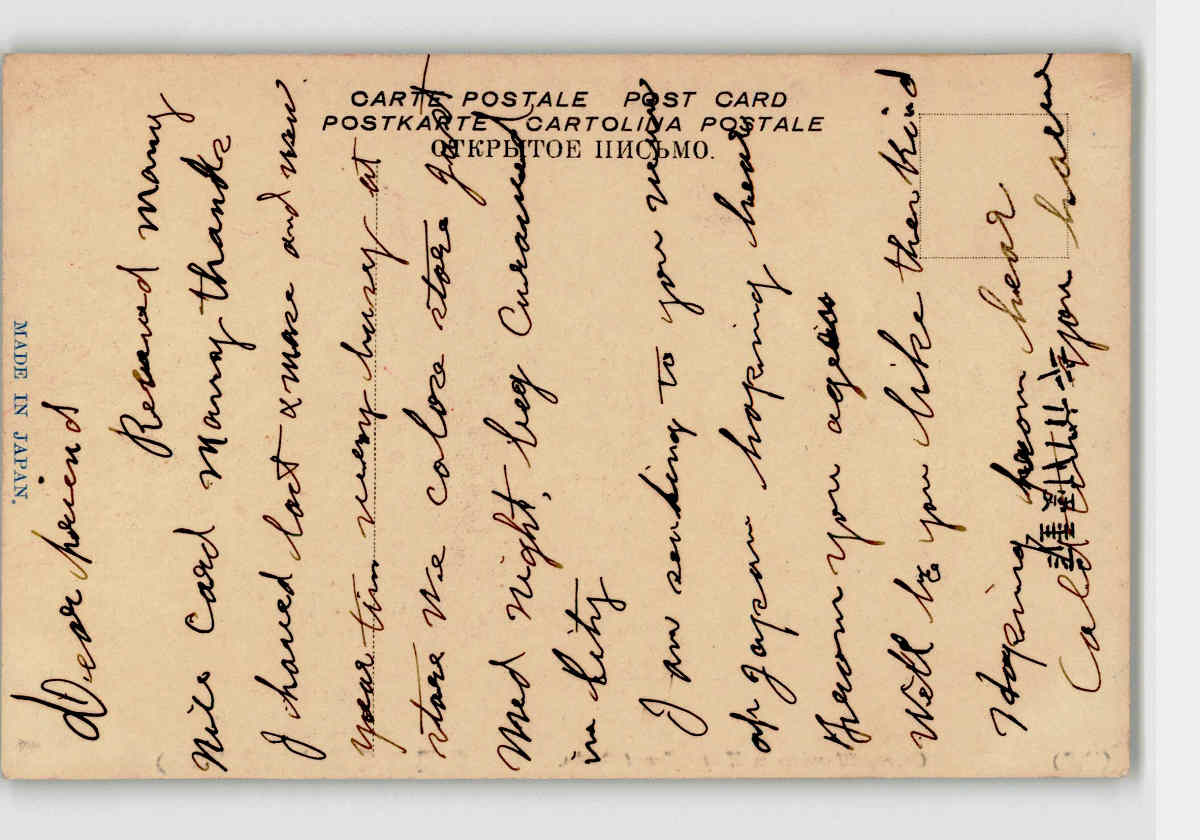 CARTE POSTALE POST CARD
POSTKARTE CARTOLINA POSTALE
ОТКРЫТОЕ ПИСЬМО.
MADE IN JAPAN.
Dear friend
Received many
nice card many thanks
I haved lost xmase and new
year tim very busy at
store we close store just
Med night, beg
in City
I am sending to you view
of Japan hoping hear
from you agein
Well be you like ther kind
Hoping from hear
you have